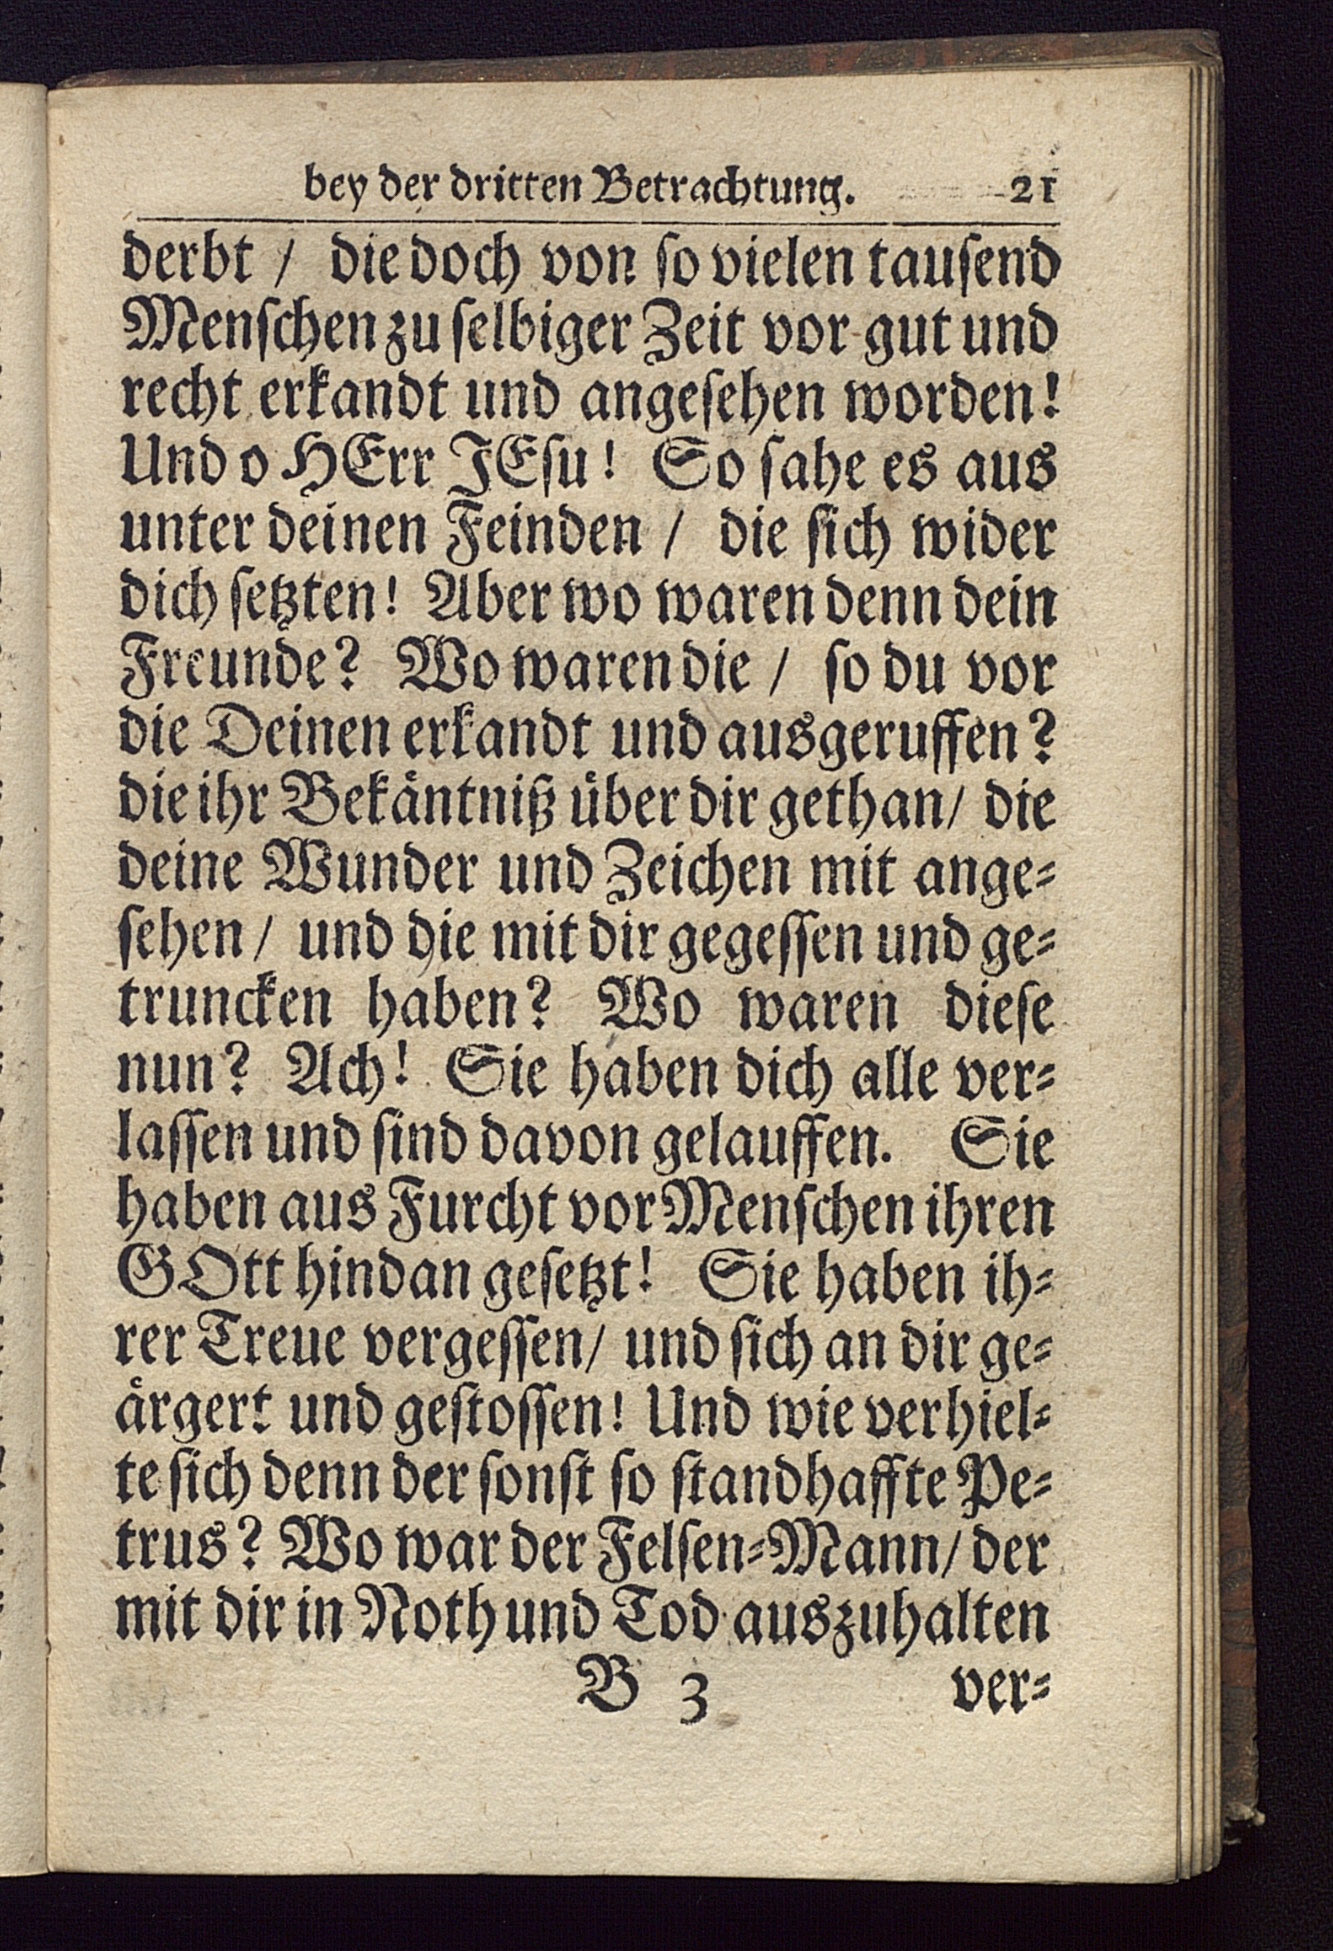 bey der dritten Betrachtung. 21
derbt / die doch von so vielen tausend
Menschen zu selbiger Zeit vor gut und
recht erkandt und angesehen worden!
Und o HErr JEsu! So sahe es aus
unter deinen Feinden / die sich wider
dich setzten! Aber wo waren denn dein
Freunde? Wo waren die / so du vor
die Deinen erkandt und ausgeruffen?
die ihr Bekäntniß über dir gethan/ die
deine Wunder und Zeichen mit ange-
sehen/ und die mit dir gegessen und ge-
truncken haben? Wo waren diese
nun? Ach! Sie haben dich alle ver-
lassen und sind davon gelauffen. Sie
haben aus Furcht vor Menschen ihren
GOtt hindan gesetzt! Sie haben ih-
rer Treue vergessen/ und sich an dir ge-
ärgert und gestossen! Und wie verhiel-
te sich denn der sonst so standhaffte Pe-
trus? Wo war der Felsen-Mann/ der
mit dir in Noth und Tod auszuhalten
B 3 ver-